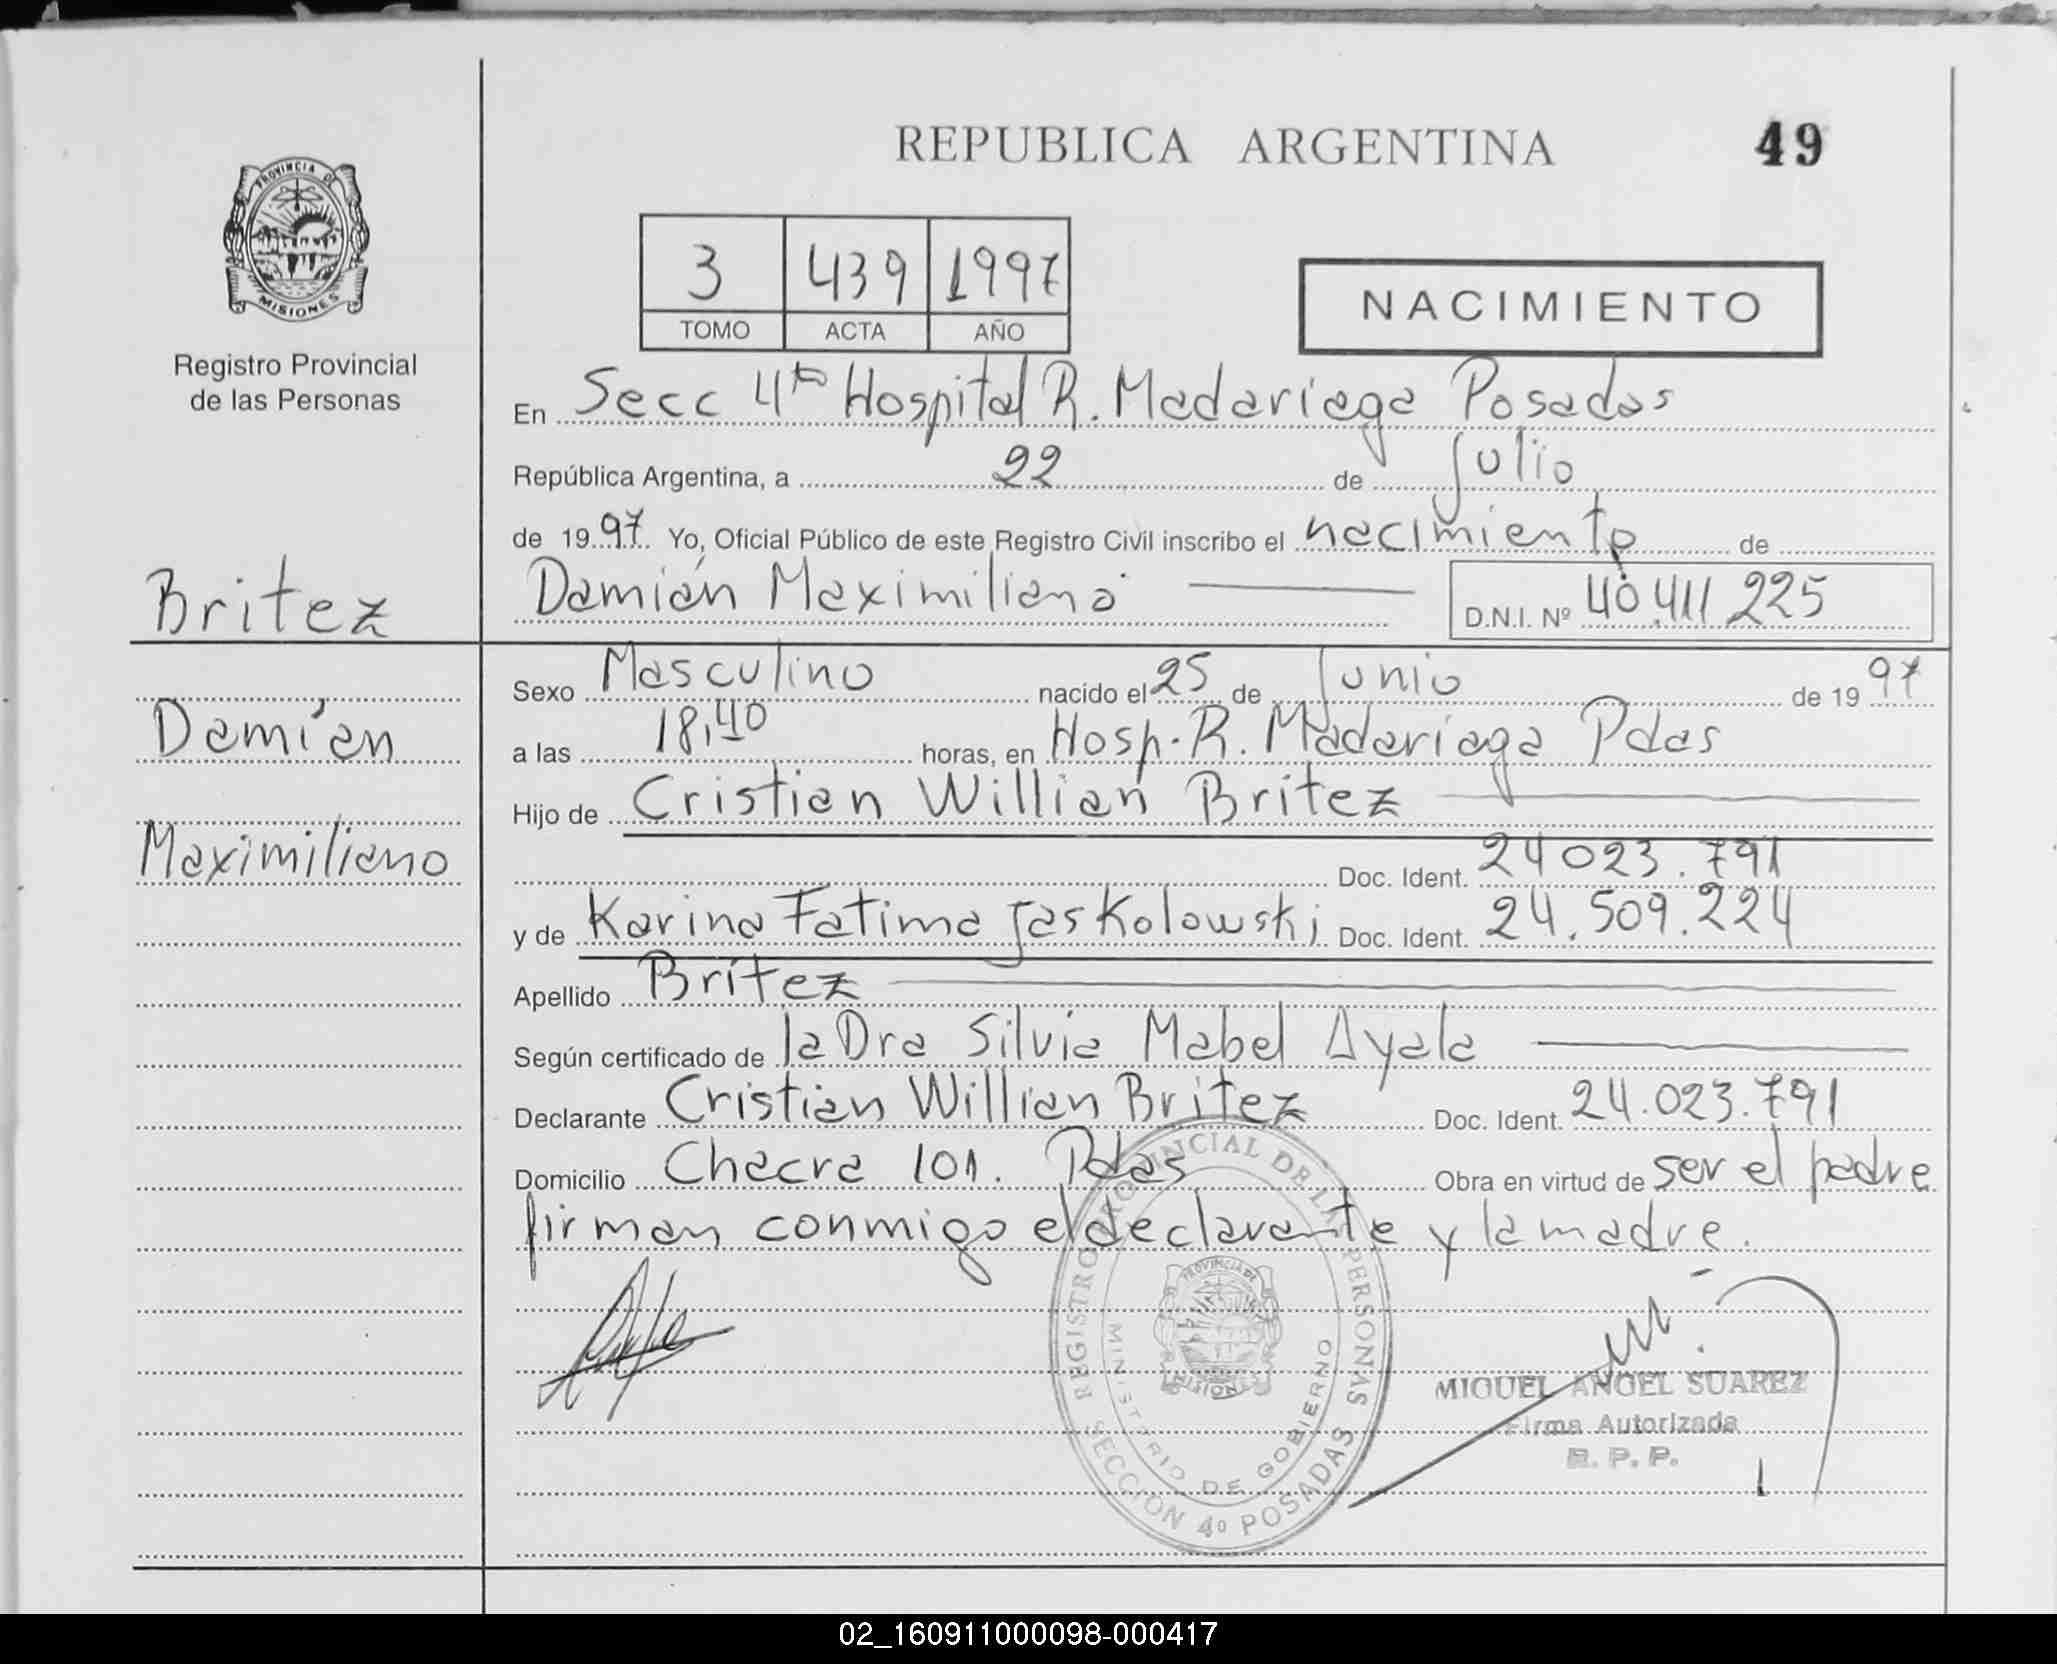 REPUBLICA ARGENTINA
49
PROVINCIA DE
MISIONES
Registro Provincial
de las Personas
3 439 1997
TOMO ACTA AÑO
NACIMIENTO
En Secc 4ta Hospital R. Madariaga Posadas
República Argentina, a 22 de Julio
de 1997 Yo, Oficial Público de este Registro Civil inscribo el nacimiento de
Britez
Damián Maximiliano
D.N.I. Nº 40.411.225
Damián
Maximiliano
Sexo Masculino nacido el 25 de Junio de 1997
a las 18,40 horas, en Hosp. R. Madariaga Pdas
Hijo de Cristian Willian Britez
Doc. Ident. 24023.791
y de Karina Fatima Jaskolowski Doc. Ident. 24.509.224
Apellido Britez
Según certificado de la Dra Silvia Mabel Ayala
Declarante Cristian Willian Britez Doc. Ident. 24.023.791
Domicilio Chacra 101. Pdas Obra en virtud de ser el padre
firman conmigo el declarante y la madre.
REGISTRO PROVINCIAL DE LAS PERSONAS
MINISTERIO DE GOBIERNO
PROVINCIA DE
MISIONES
SECCION 4º POSADAS
MIGUEL ANGEL SUAREZ
Firma Autorizada
R. P. P.
02_160911000098-000417